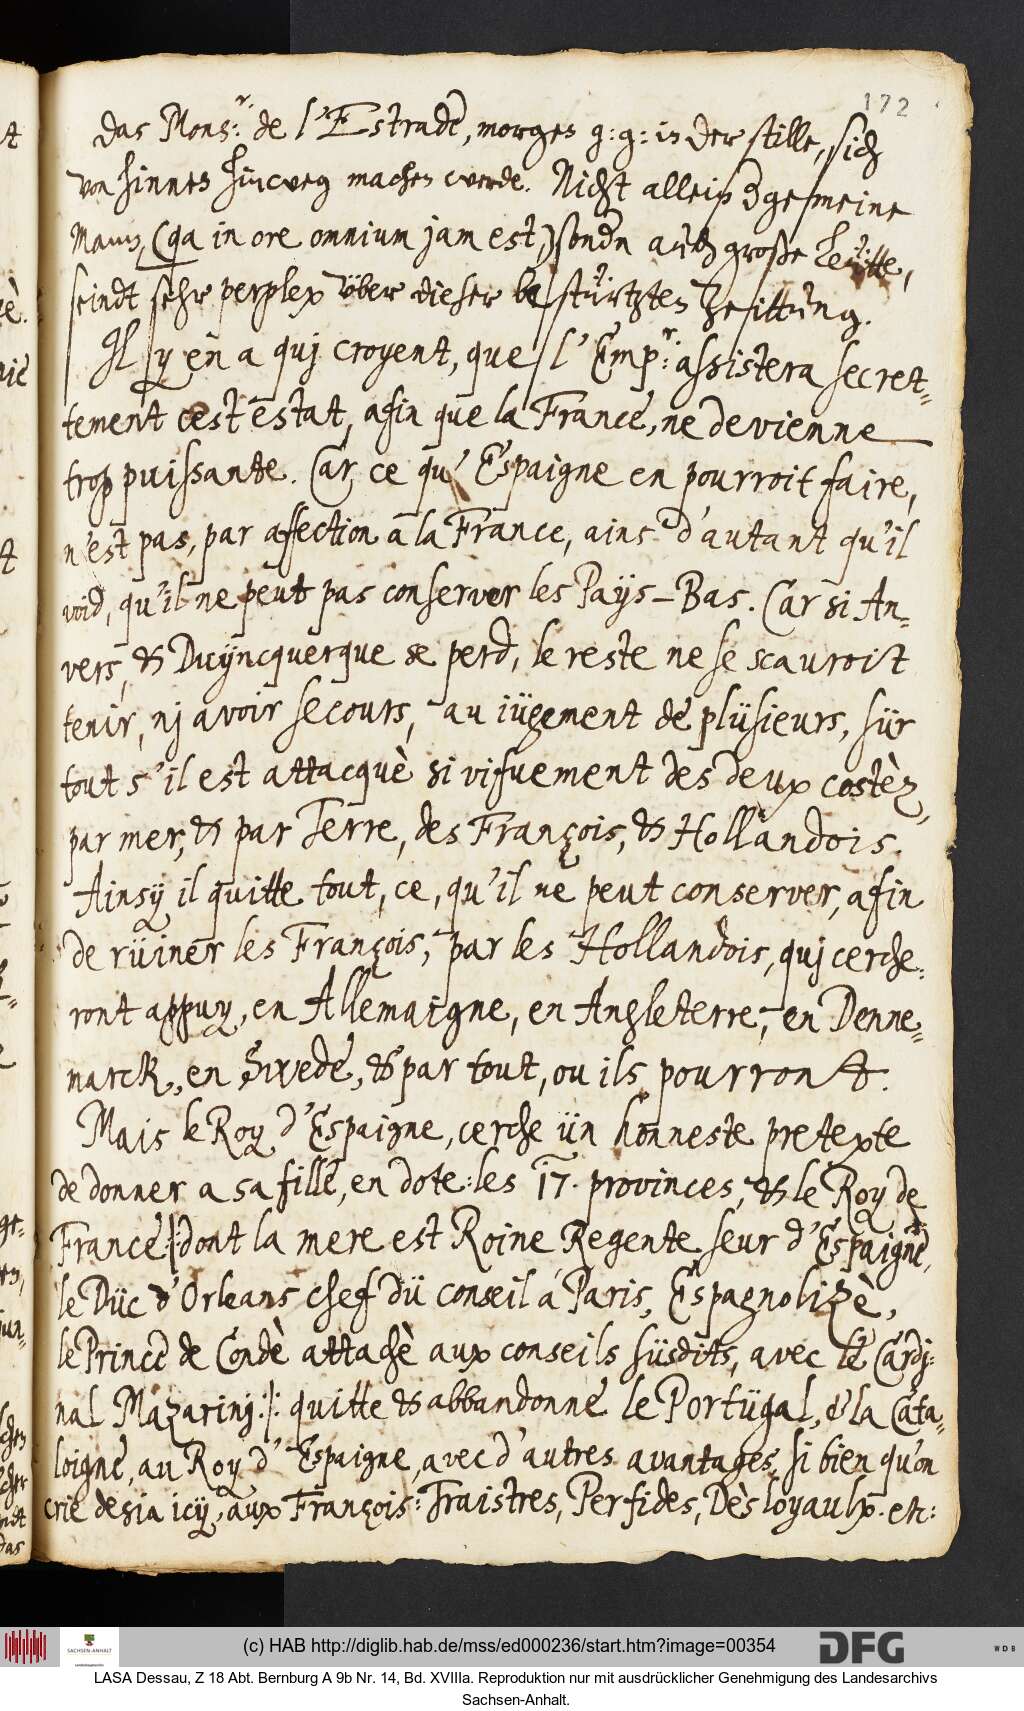 172
das Mons:r de l'Estrade, morgen g: g: in der stille, sich
von hinnen hinweg machen werde. Nicht allein d gemeine
Mann, (qa in ore omnium jam est,) sondn auch große Leütte,
seindt sehr perplex über dieser bestürtzten Zeittung.
Il y en a quj croyent, que l'Emp:r assistera secret-
tement cest estat, afin que la France, ne devienne
trop puissante. Car, ce qu' Espaigne en pourroit faire,
n'est pas, par affection a la France, ains d'autant qu'il
void, qu'il ne peut pas conserver les Païjs-Bas. Car si An-
vers, & Duÿncquerque se perd, le reste ne se scauroit
tenir, nj avoir secours, au iügement de plüsieurs, sür
tout s'il est attacquè si vifuement des deux costèz,
par mer, & par Terre, des François, & Hollandois.
Ainsÿ il quitte tout, ce, qu'il ne peut conserver, afin
de rüiner les François, par les Hollandois, quj cerche-
ront appuy, en Allemaigne, en Angleterre, en Denne-
marck, en Swede, & par tout, ou ils pourront.
Mais le Roy d'Espaigne, cerche ün honneste pretexte
de donner a sa fille, en dote: les 17. provinces, & le Roy de
France /: dont la mere est Roine Regente, seur d'Espaigne,
le Düc d'Orleans chef dü conseil a Paris, Espagnolizè,
le Prince de Condè attachè aux conseils süsdits, avec le Cardj-
nal Mazarinj :/: quitte & abbandonne le Portügal, & la Cata-
loigne, au Roy d' Espaigne, avec d'autres avantages, si bien qu'on
crie desia icÿ, aux François: Traistres, Perfides, Dèsloyaulx. etc:
(c) HAB http://diglib.hab.de/mss/ed000236/start.htm?image=00354
SACHSEN-ANHALT
DFG
WDB
LASA Dessau, Z 18 Abt. Bernburg A 9b Nr. 14, Bd. XVIIIa. Reproduktion nur mit ausdrücklicher Genehmigung des Landesarchivs
Sachsen-Anhalt.